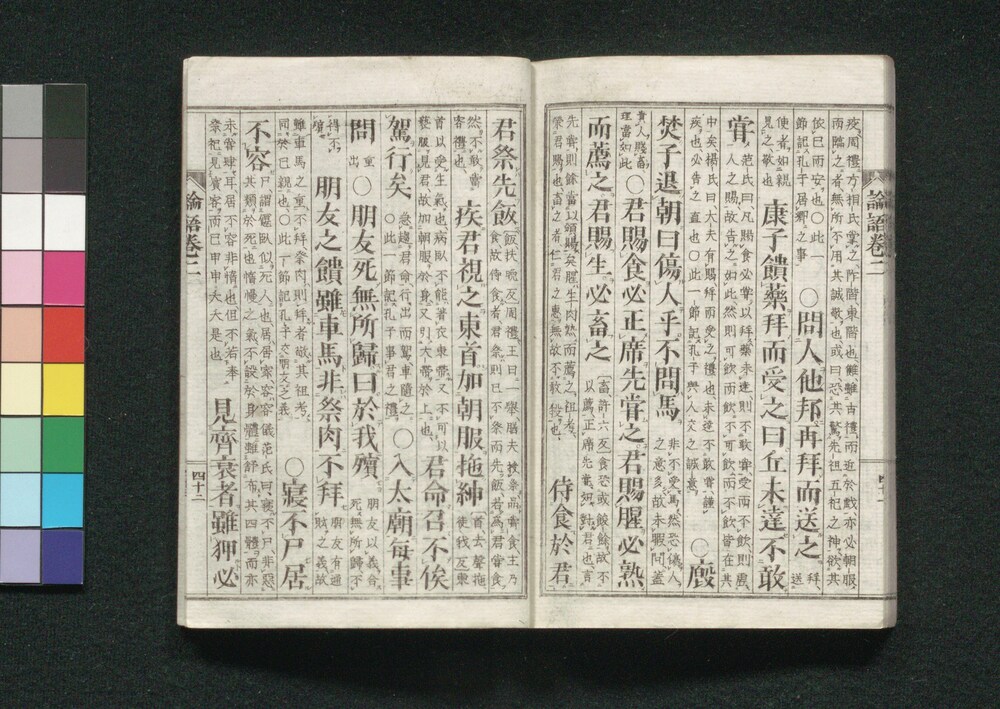 論語卷二
疫、周禮方相氏掌之、阼階、東階也、儺雖古禮、而近於戲、亦必朝服、
而臨之者、無所不用其誠敬也、或曰、恐其驚先祖五祀之神、欲其
依己而安也、○此一節記孔子居鄉之事 ○問人他邦再拜而送之 拜送
使者、如親見之、敬也 康子饋藥拜而受之曰丘未達不敢
嘗 范氏曰、凡賜食必嘗以拜、藥未達則不敢嘗、受而不飲、則虛人之賜、故告之如此、然則可飲而飲、不可飲而不飲、皆在其
中矣、楊氏曰、大夫有賜、拜而受之、禮也、未達不敢嘗、謹疾也、必告之、直也、○此一節記孔子與人交之誠意 ○廄
焚子退朝曰傷人乎不問馬 非不愛馬、然恐傷人之意多、故未暇問、蓋
貴人賤畜、理當如此 ○君賜食必正席先嘗之君賜腥必熟
而薦之君賜生必畜之 〔畜許六反〕食恐或餕餘、故不以薦、正席先嘗、如對君也、言
先嘗、則餘當以頒賜矣、腥、生肉、熟而薦之祖考、榮君賜也、畜之者、仁君之惠、無故不敢殺也、 侍食於君
君祭先飯 〔飯扶晚反〕周禮、王日一舉、膳夫授祭品嘗食、王乃食、故侍食者、君祭則己不祭、而先飯、若爲君嘗食
然、不敢當客禮也、 疾君視之東首加朝服拖紳 〔首去聲拖徒我反〕東
首以受生氣也、病臥不能著衣束帶、又不可以褻服見君、故加朝服於身、又引大帶於上也、 君命召不俟
駕行矣 急趨君命、行出而駕車隨之、○此一節記孔子事君之禮 ○入太廟每事
問 重出 ○朋友死無所歸曰於我殯 朋友以義合、死無所歸、不
得不殯、 朋友之饋雖車馬非祭肉不拜 朋友有通財之義、故
雖車馬之重不拜、祭肉則拜者、敬其祖考、同於己親也、○此一節記孔子交朋友之義 ○寢不尸居
不容 尸、謂偃臥似死人也、居、居家、容、容儀、范氏曰、寢不尸、非惡其類於死也、惰慢之氣不設於身體、雖舒布其四體、而亦
未嘗肆耳、居不容、非惰也、但不若奉祭祀、見賓客而已、申申夭夭是也 見齊衰者雖狎必
論語卷二 四十二